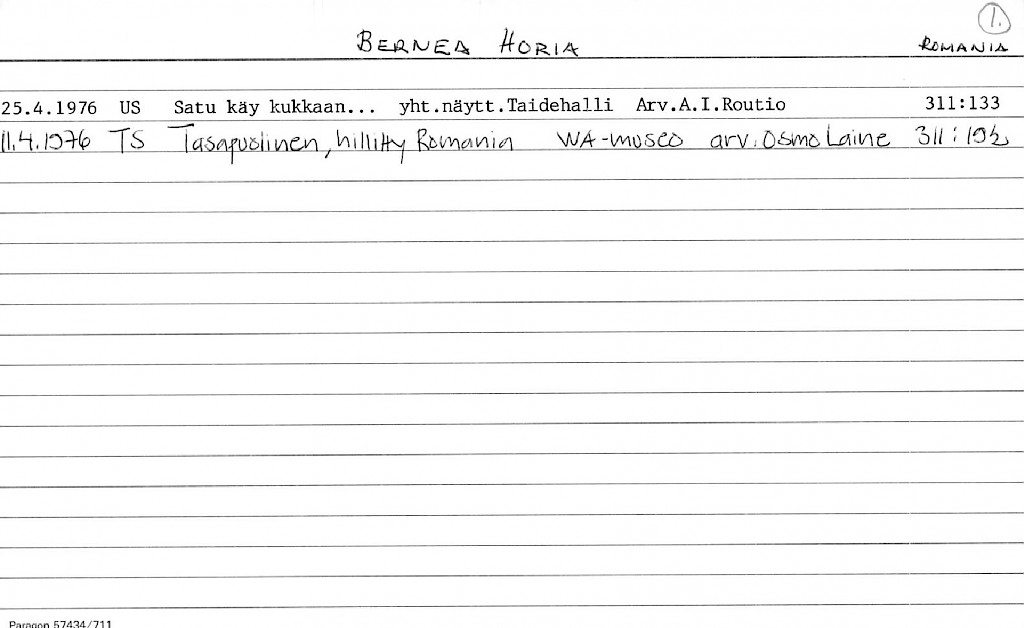 1.
BERNEA HORIA ROMANIA
25.4.1976 US Satu käy kukkaan... yht.näytt.Taidehalli Arv.A.I.Routio 311:133
11.4.1976 TS Tasapuolinen, hillitty Romania WA-museo arv. Osmo Laine 311:192
Paragon 57434/711